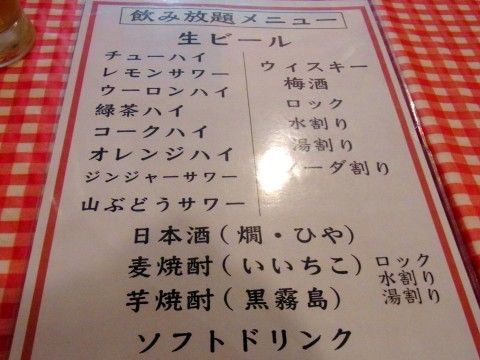 飲み放題メニュー
生ビール
チューハイ
レモンサワー
ウーロンハイ
緑茶ハイ
コークハイ
オレンジハイ
ジンジャーサワー
山ぶどうサワー
ウィスキー
梅酒
ロック
水割り
湯割り
ソーダ割り
日本酒(燗・ひや)
麦焼酎(いいちこ)ロック
水割り
芋焼酎(黒霧島)湯割り
ソフトドリンク